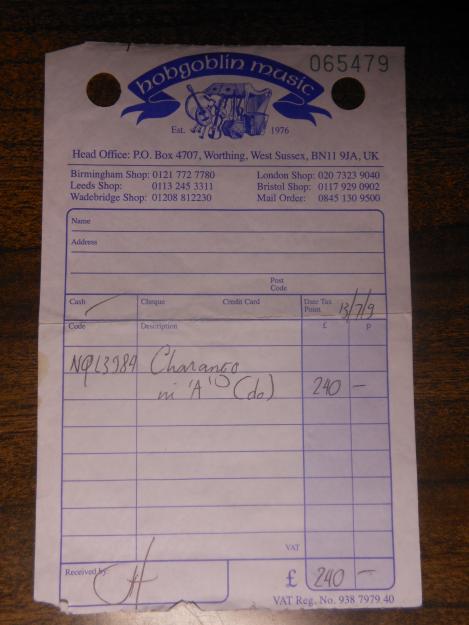 065479
hobgoblin music
Est. 1976
Head Office: P.O. Box 4707, Worthing, West Sussex, BN11 9JA, UK
Birmingham Shop: 0121 772 7780 London Shop: 020 7323 9040
Leeds Shop: 0113 245 3311 Bristol Shop: 0117 929 0902
Wadebridge Shop: 01208 812230 Mail Order: 0845 130 9500
Name
Address
Post
Code
Cash Cheque Credit Card Date Tax
Point 13/7/9
Code Description £ p
3984 Charango
in 'A' (do) 240 —
VAT
Received by: £ 240 —
VAT Reg. No. 938 7979 40